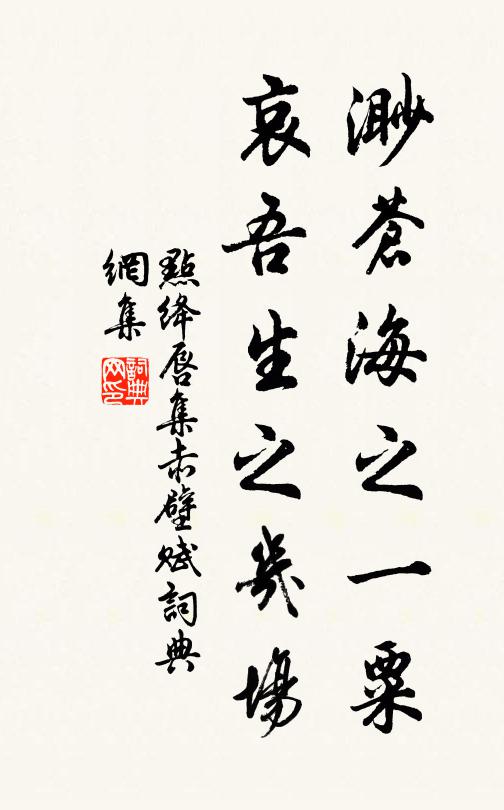 渺蒼海之一粟
哀吾生之幾場
點絳唇集赤壁賦詞典
網集
詞典
网印